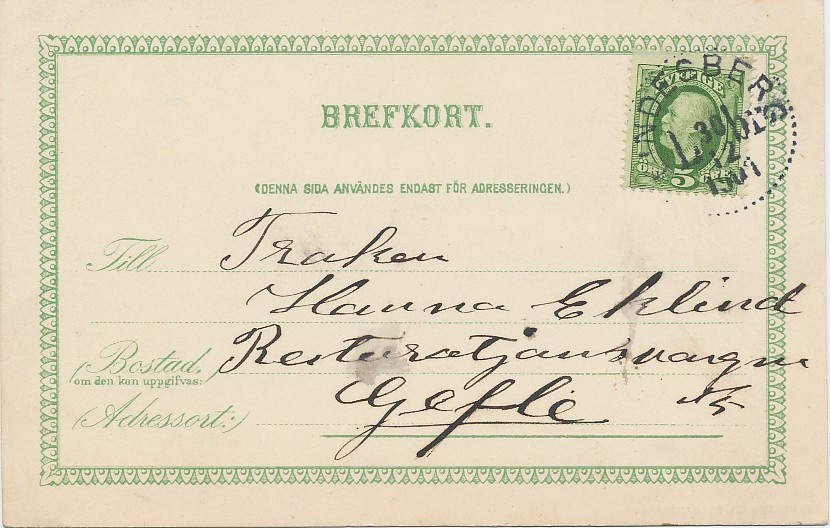 BREFKORT.
(DENNA SIDA ANVÄNDES ENDAST FÖR ADRESSERINGEN.)
SVERIGE
5
LINDESBERG
30
12
1901
Till Fraken
Hanna Eklind
(Bostad,
om den kan uppgifvas:)
(Adressort:) Gefle